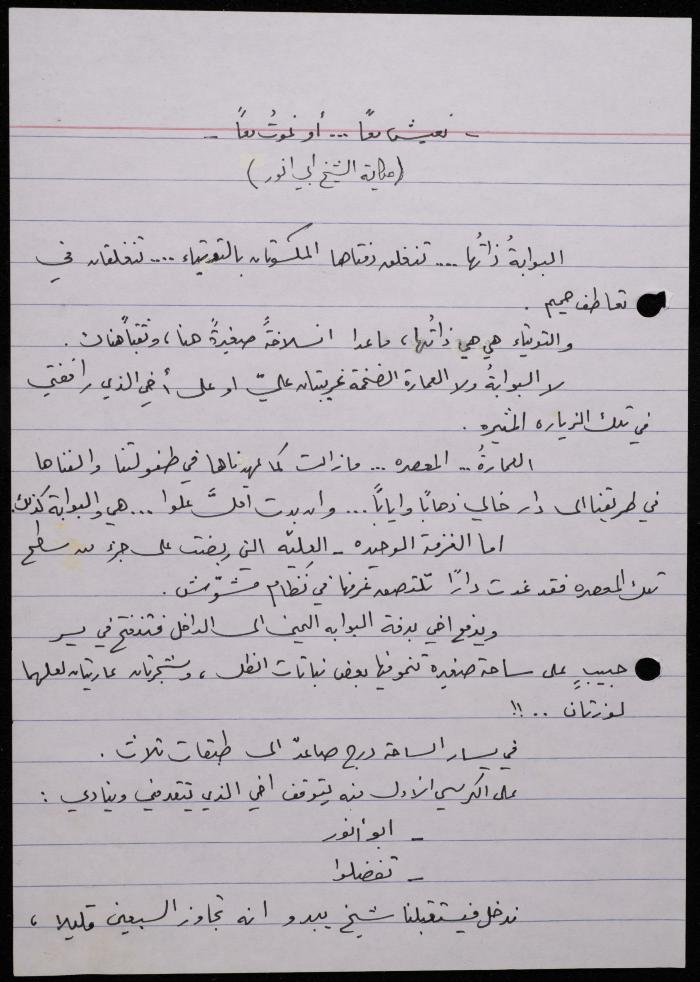 - نعيش معًا ... أو نموتُ معًا -
(حكاية الشيخ ابي انور)
البوابةُ ذاتُها .... تنغلق دفتاها المكسوتان بالتوتياء .... تنغلقان في
تعاطف حميم .
والتوتياء هي هي ذاتُها، ماعدا انسلاخةً صغيرةً هنا، وثقبًا هناك .
لا البوابةُ ولا العمارة الضخمة غريبتان عليّ او على أخي الذي رافقني
في تلك الزياره المثيره .
العمارةُ... المعصره ... مازالت كما عهدناها في طفولتنا والفناها
في طريقنا الى دار خالي ذهابًا وايابًا ... وان بدت أقلَّ علوا ... هي والبوابة كذلك.
اما الغرفة الوحيده - العليّه التي ربضت على جزء من سطح
تلك المعصره فقد غدت دارًا تلتصق غرفها في نظام مشوّش .
ويدفع اخي بدفة البوابه اليمنى الى الداخل فتنفتح في يسر
حبيبٍ على ساحة صغيره تنمو فيها بعض نباتات الظل ، وشجرتان عاريتان لعلهما
لوزتان ..!!
في يسار الساحة درج صاعدٌ الى طبقات ثلاث .
على الكرسي الاول منه يتوقف اخي الذي يتقدمني وينادي :
- ابو أنور
- تفضلوا
ندخل فيستقبلنا شيخ يبدو انه تجاوز السبعين قليلا ،